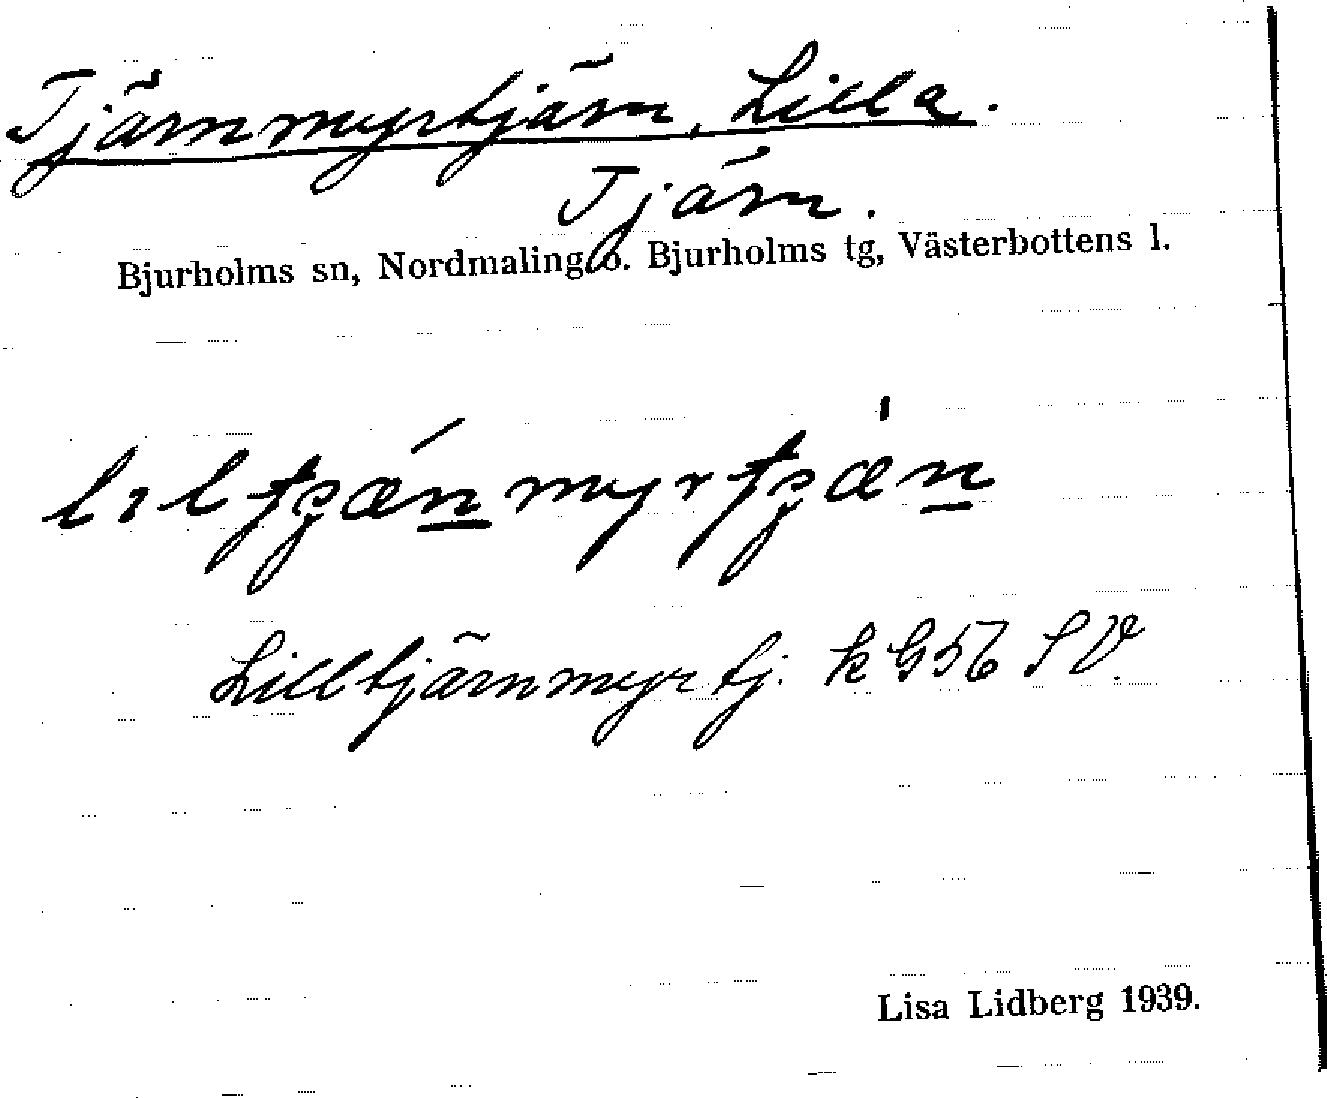 Tjärnmyrtjärn, Lilla.
Tjärn.
Bjurholms sn, Nordmaling o. Bjurholms tg, Västerbottens l.
Lilltjärnmyrtj. k G56 SV.
Lisa Lidberg 1939.